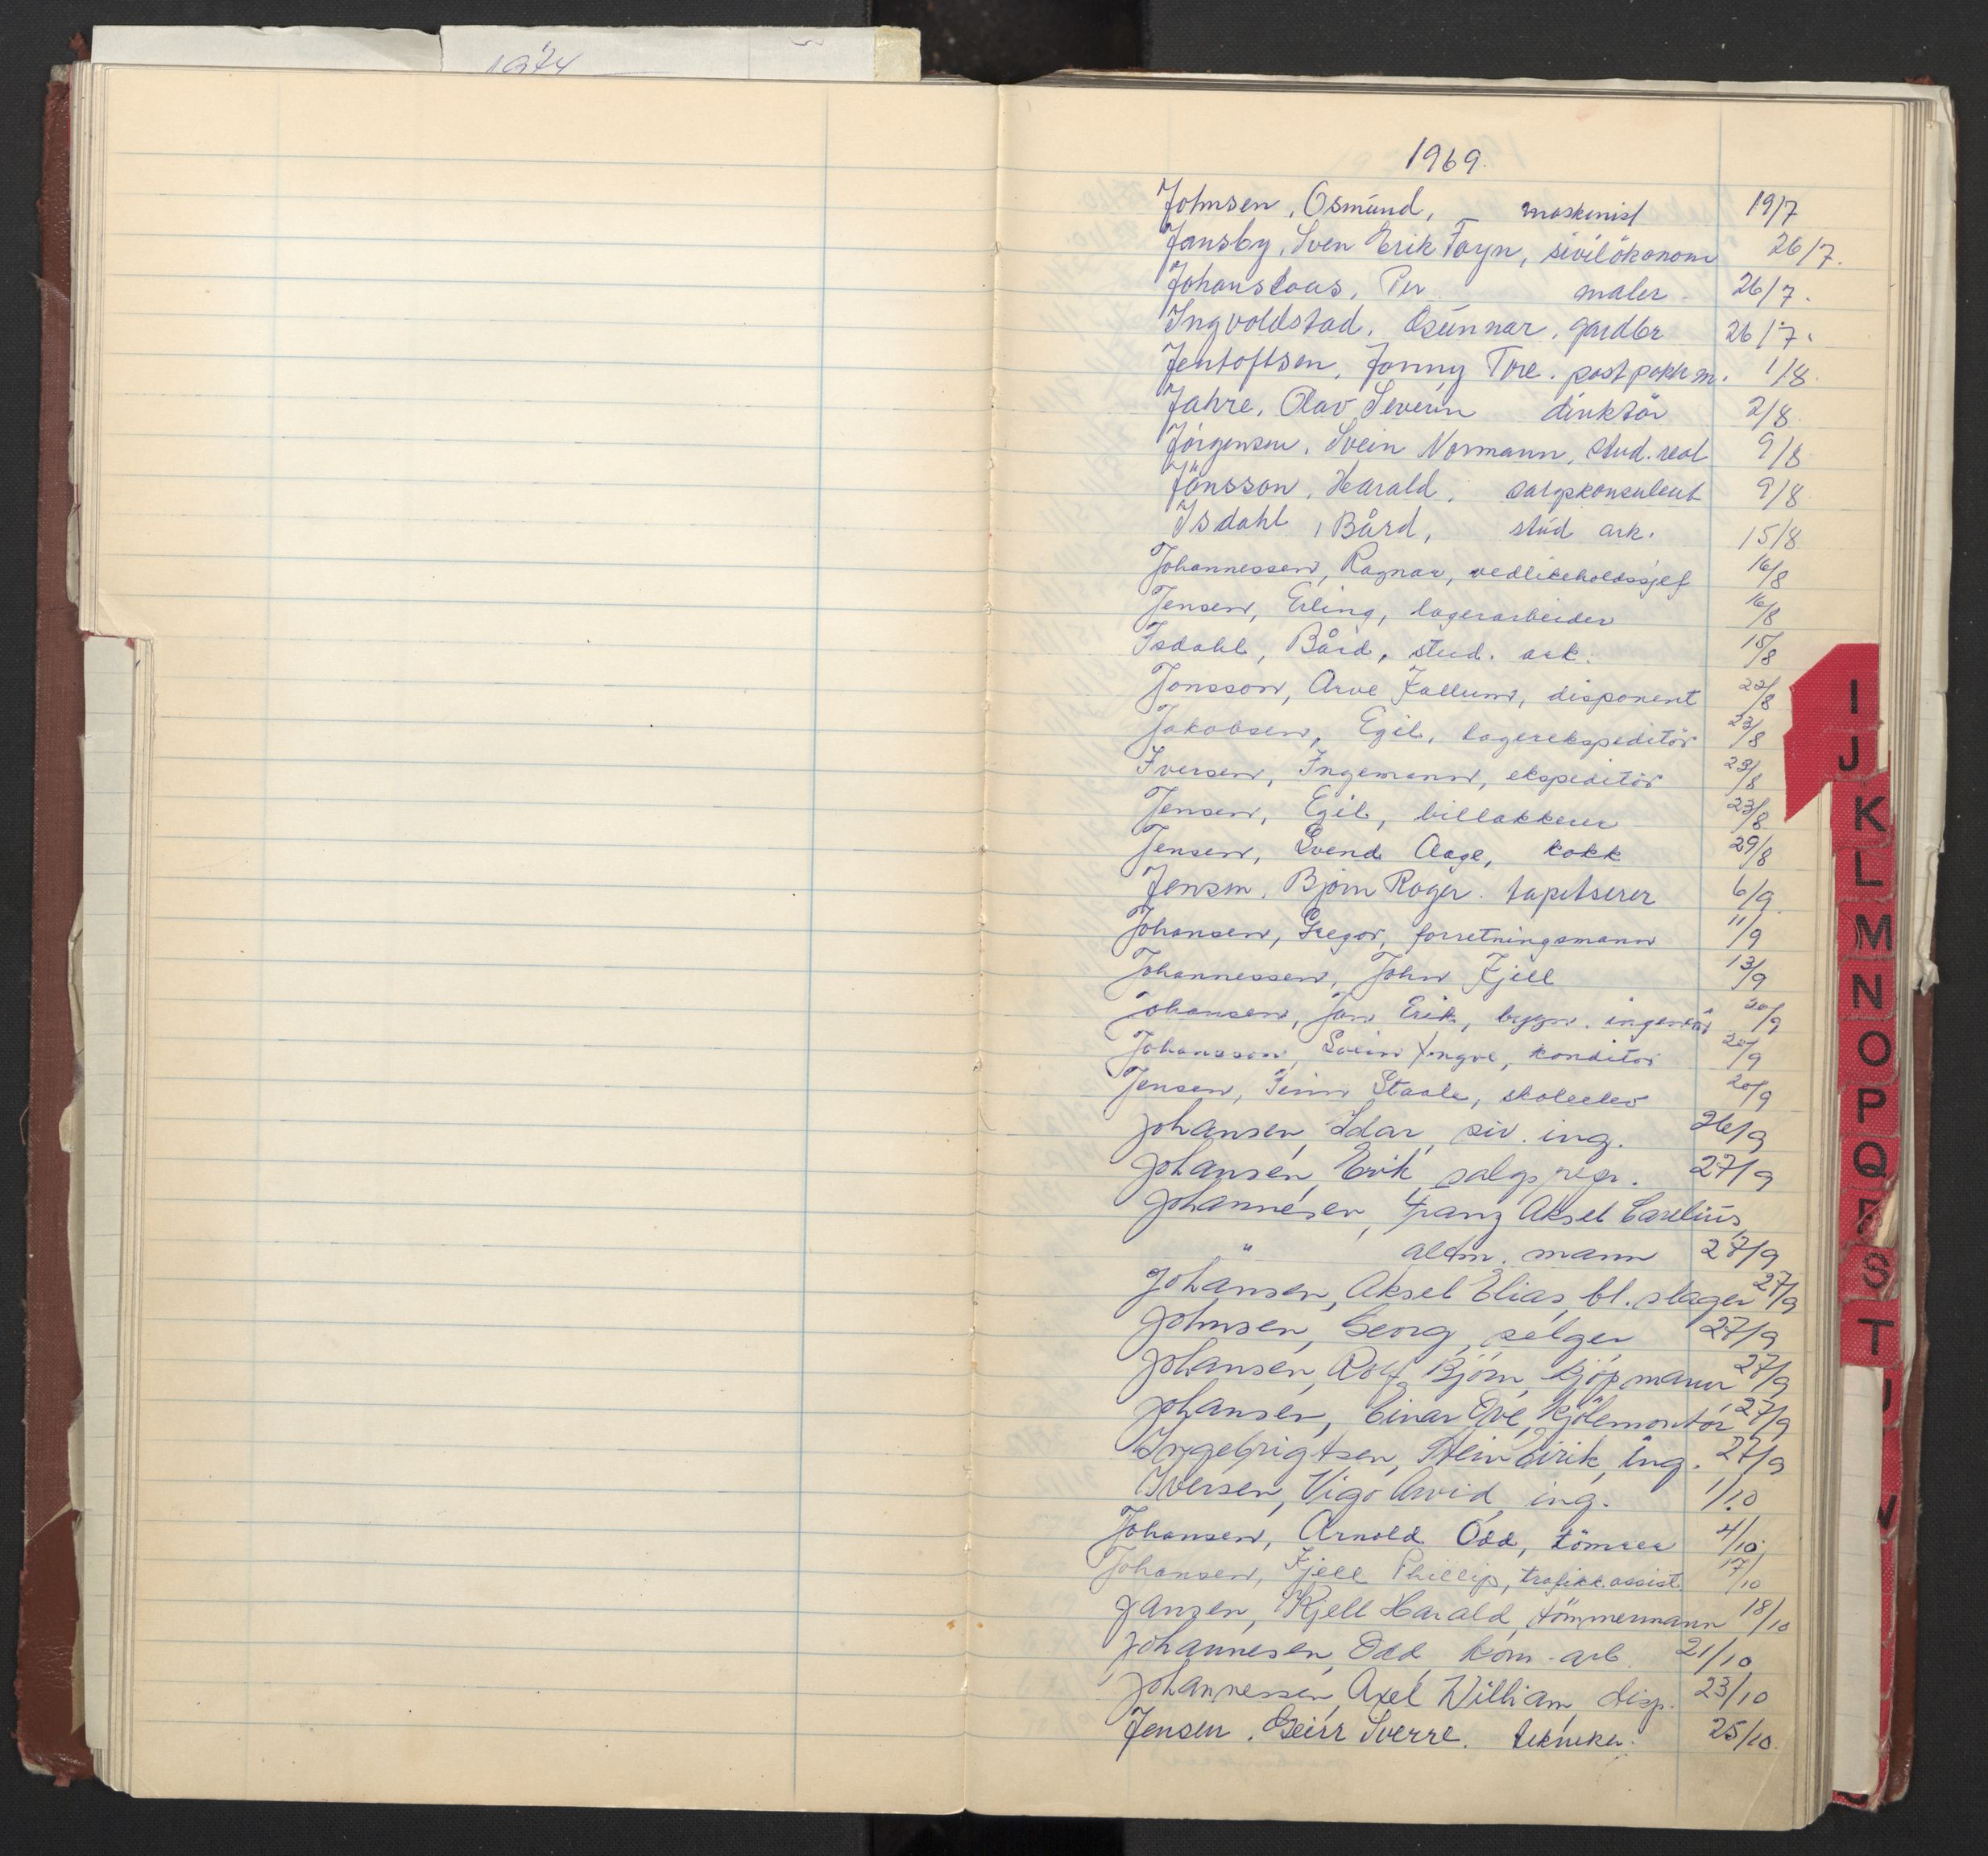 1974
1969.
Johnsen, Osmund, maskinist 19/7
Jansby, Sven Erik Fayn, sivilökonom 26/7.
Johanslaas, Per maler 26/7.
Ingvoldstad, Gunnar, gardbr 26/7.
Jentoftsen, Jonny Tore. postpakkm. 1/8.
Jahre, Olav Severin direktör 2/8.
Jörgensen, Svein Normann, stud. real 9/8
Jönsson, Harald, salgskonsulent 9/8
Isdahl, Bård, stud ark. 15/8
Johannessen, Ragnar, vedlikeholdssjef 16/8
Jensen, Erling, lagerarbeider 16/8
Isdahl, Bård, stud. ark. 15/8
Jonsson, Arve Kallum, disponent 22/8
Jakobsen, Egil, lagerekspeditör 23/8
Iversen, Ingemann, ekspeditör 23/8
Jensen, Egil, billakkerer 23/8
Jensen, Svend Aage, kokk 29/8
Jensen, Bjørn Roger. tapetserer 6/9.
Johansen, Gregor, forretningsmann 11/9
Johannessen, John Kjell 13/9
Johansen, Jan Erik, bygn. ingeniör 20/9
Johansson, Svein Yngve, konditor 20/9
Jensen, Finn Staale, skoleelev 20/9
Johansen, Idar, siv. ing. 26/9
Johansen, Erik, salgs repr. 27/9
Johannesen, Franz Aksel Carelius,
" altm. mann 27/9
Johansen, Aksel Elias, bl. slager 27/9
Johnsen, Georg, selger 27/9
Johansen, Rolf Bjørn, kjøpmann 27/9
Johansen, Einar Ove, kjölemontör 27/9
Ingebrigtsen, Stein Eirik, ing. 27/9
Iversen, Vigo Arvid, ing. 1/10
Johansen, Arnold Odd, tömrer 4/10.
Johansen, Kjell Phillip, trafikkassist. 17/10
Jansen, Kjell Harald, tömmermann 18/10
Johannesen, Odd, kom. arb. 21/10
Johannessen, Axel William, disp. 23/10
Jensen, Geirr Sverre. tekniker. 25/10.
I
J
K
L
M
N
O
P
Q
R
S
T
U
V